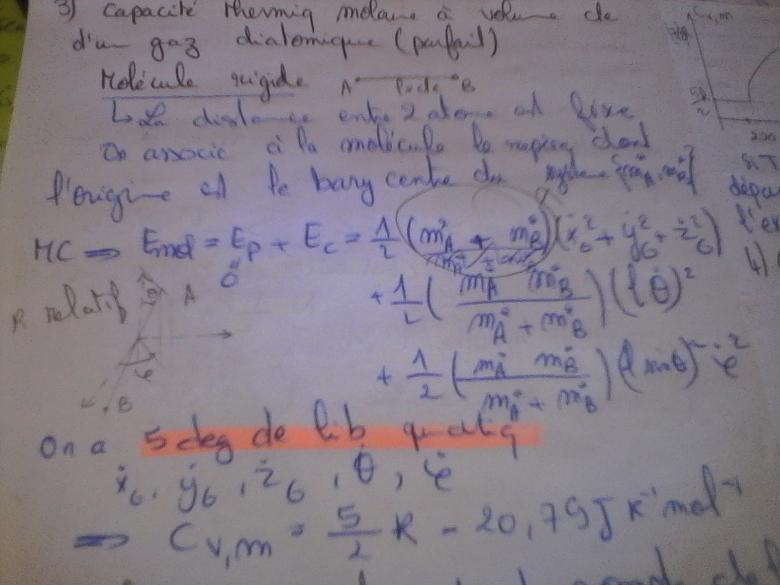 3) capacité thermiq molaire à volume de
d'un gaz diatomique (parfait)
Molécule rigide A B
↳ La distance entre 2 atome est fixe
On associe à la molécule le repère dont
l'origine est le barycentre du système {m*A, m*B}
MC ⇒ Emol = Ep + Ec = 1/2 (m*A + m*B)(ẋ²G + ẏ²G + ż²G)
0
+ 1/2 (m*A m*B / (m*A + m*B)) (l θ̇)²
R relatif θ A
+ 1/2 (m*A m*B / (m*A + m*B)) (l sinθ)² φ̇²
φ
B
On a 5 deg de lib quatiq
ẋG, ẏG, żG, θ̇, φ̇
⇒ Cv,m = 5/2 R - 20,79 J K⁻¹ mol⁻¹
Cv,m
5R/2
si T
dépa
l'ex
4)